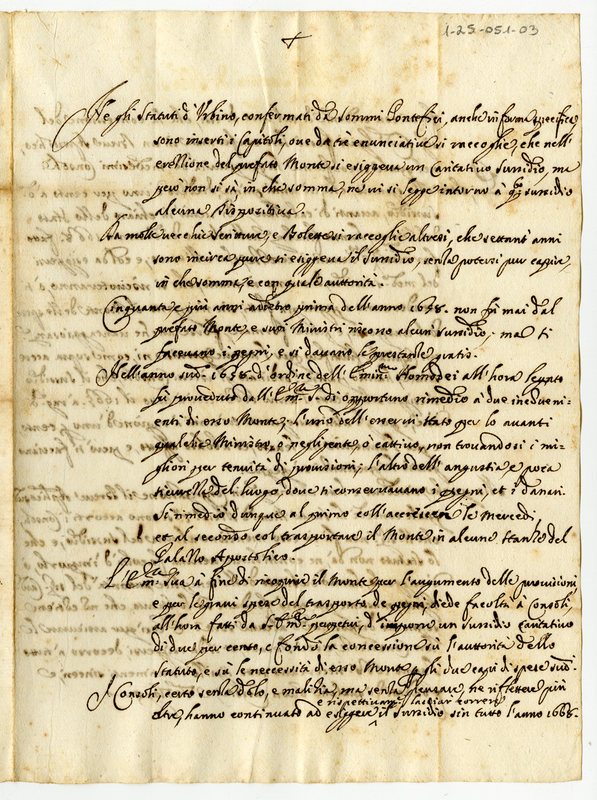 1-25-051-03
Ne gli Statuti d'Urbino, confermati da sommi Pontefici, anche in forma specifica
sono inserti i Capitoli, ove da tre enunciative si raccoglie, che nell'
erettione del prefato Monte si esiggeva un Caritativo sussidio, ma
però non si sà in che somma, ne vi si legge intorno à sussidio
alcuna Dispositiva.
Da molte vecchie scritture, e Bolette si raccoglie altresì, che settant'anni
sono incirca pure si esiggeva il sussidio, senza potersi pur capire
in che somma, e con quale auttorità.
Cinquanta e più anni prima dell'anno 1658. non fù mai dal
prefato Monte, e suoi Ministri riscosso alcun sussidio, ma si
facevano i pegni, e si davano le prestanze gratis.
Nell'anno sud. 1658. d'ordine dell'Emin. Homodei all'hora legato
fù proveduto dall'Em. S. di opportuno rimedio à due inconvenienti
di esso Monte; l'uno dell'esservi stato per lo avanti
qualche Ministro, ò negligente, ò cattivo, non trovandosi i migliori
per tenuità di provisioni; l'altro dell'angustia e poca
sicurezza del luogo, dove si conservavano i pegni, et i danari.
Si rimediò dunque al primo coll'accrescere le Mercedi,
et al secondo col trasportare il Monte in alcune stanze del
Palazzo Apostolico.
L'Em. Sua à fine di ricoprire il Monte per l'augumento delle provisioni,
e per le gravi spese del trasporto de pegni, diede facoltà à Consoli,
all'hora fatti da S. Em. perpetui, d'imporre un sussidio caritativo
di due per cento, e fondò la concessione sù l'auttorità dello
statuto, e sù le necessità di esso Monte per gli due capi di spese sud.
I Consoli, certo senza dolo, e malitia, ma senza pensare, ne riflettere più
e rispettivam. lasciar correre
oltre, hanno continuato ad esiggere il sussidio sin tutto l'anno 1668.